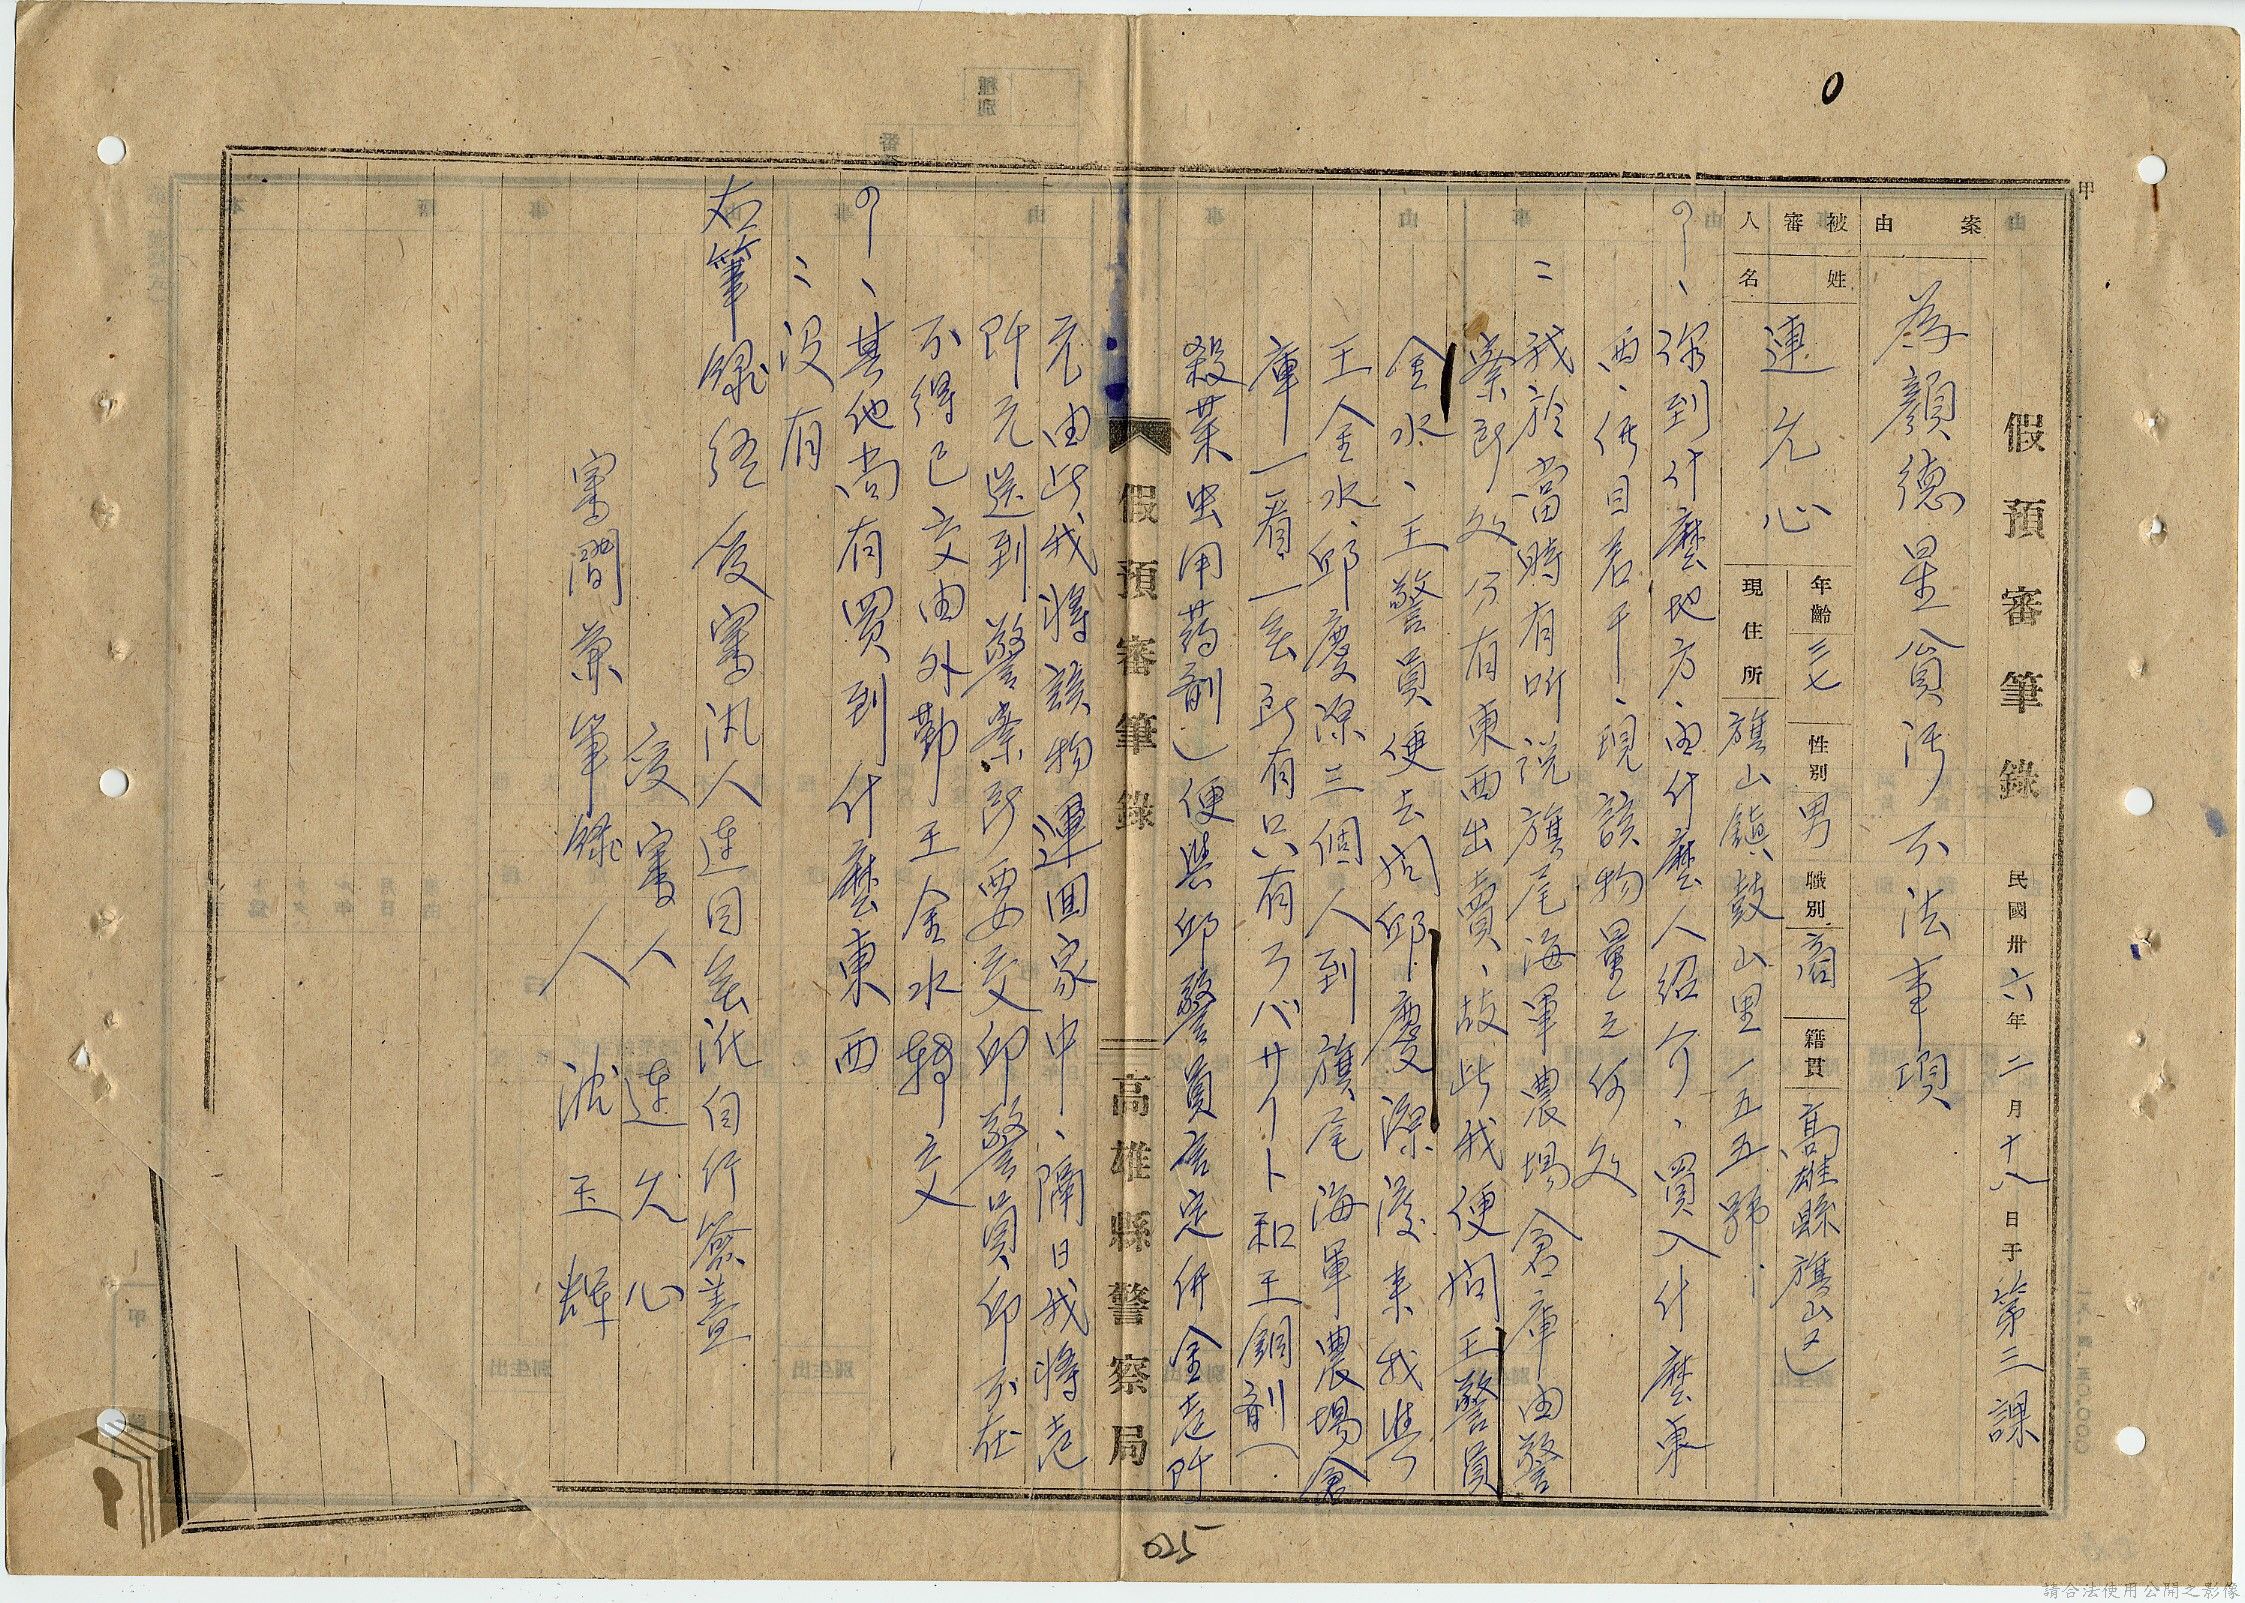 假預審筆錄 民國卅六年二月十八日于第三課
案由 為顏德星貪污不法事項
被審人 姓名 連允心 年齡 三七 性別 男 職別 商 籍貫 高雄縣旗山區
現住所 旗山鎮鼓山里一五五號
、你到什麼地方、由什麼人紹介、買入什麼東
西、価目若干、現該物置之何處
我於當時有所說旗尾海軍農場倉庫由警
察所處分有東西出賣、故此我便問王警員
金水、王警員便去問邱慶深後来我與
王金水、邱慶深三個人到旗尾海軍農場倉
庫一看一看所有只有ラバサイト和王銅劑(
殺菜虫用药劑)便與邱警員言定価金壱阡
元由此我將該物運回家中、隔日我將壱
阡元送到警察所要交邱警員邱不在
不得已交由外勤王金水轉交
、其他尚有買到什麼東西
沒有
右筆錄經受審訊人連同無訛自行簽蓋
受審人 連允心
審問兼筆錄人 沈玉輝
假預審筆錄 高雄縣警察局
甲
0
025
請合法使用公開之影像